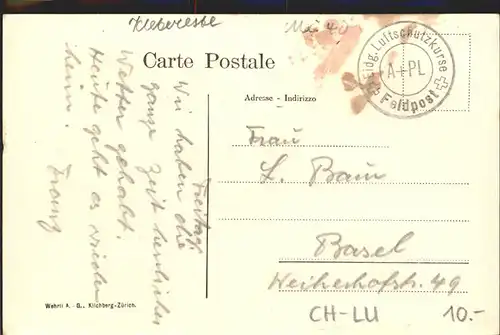 Kleberesste
Mai 40
Carte Postale
Eidg. Luftschutzkurse
A+PL
Feldpost
Adresse - Indirizzo
Freitag.
Wir haben die
ganze Zeit herrliches
Wetter gehabt.
Heute geht es wieder
heim.
Franz
Frau
L. Baur
Basel
Weiherhofstr. 49
Wehrli A.-G., Kilchberg-Zürich.
CH-LU
10.-